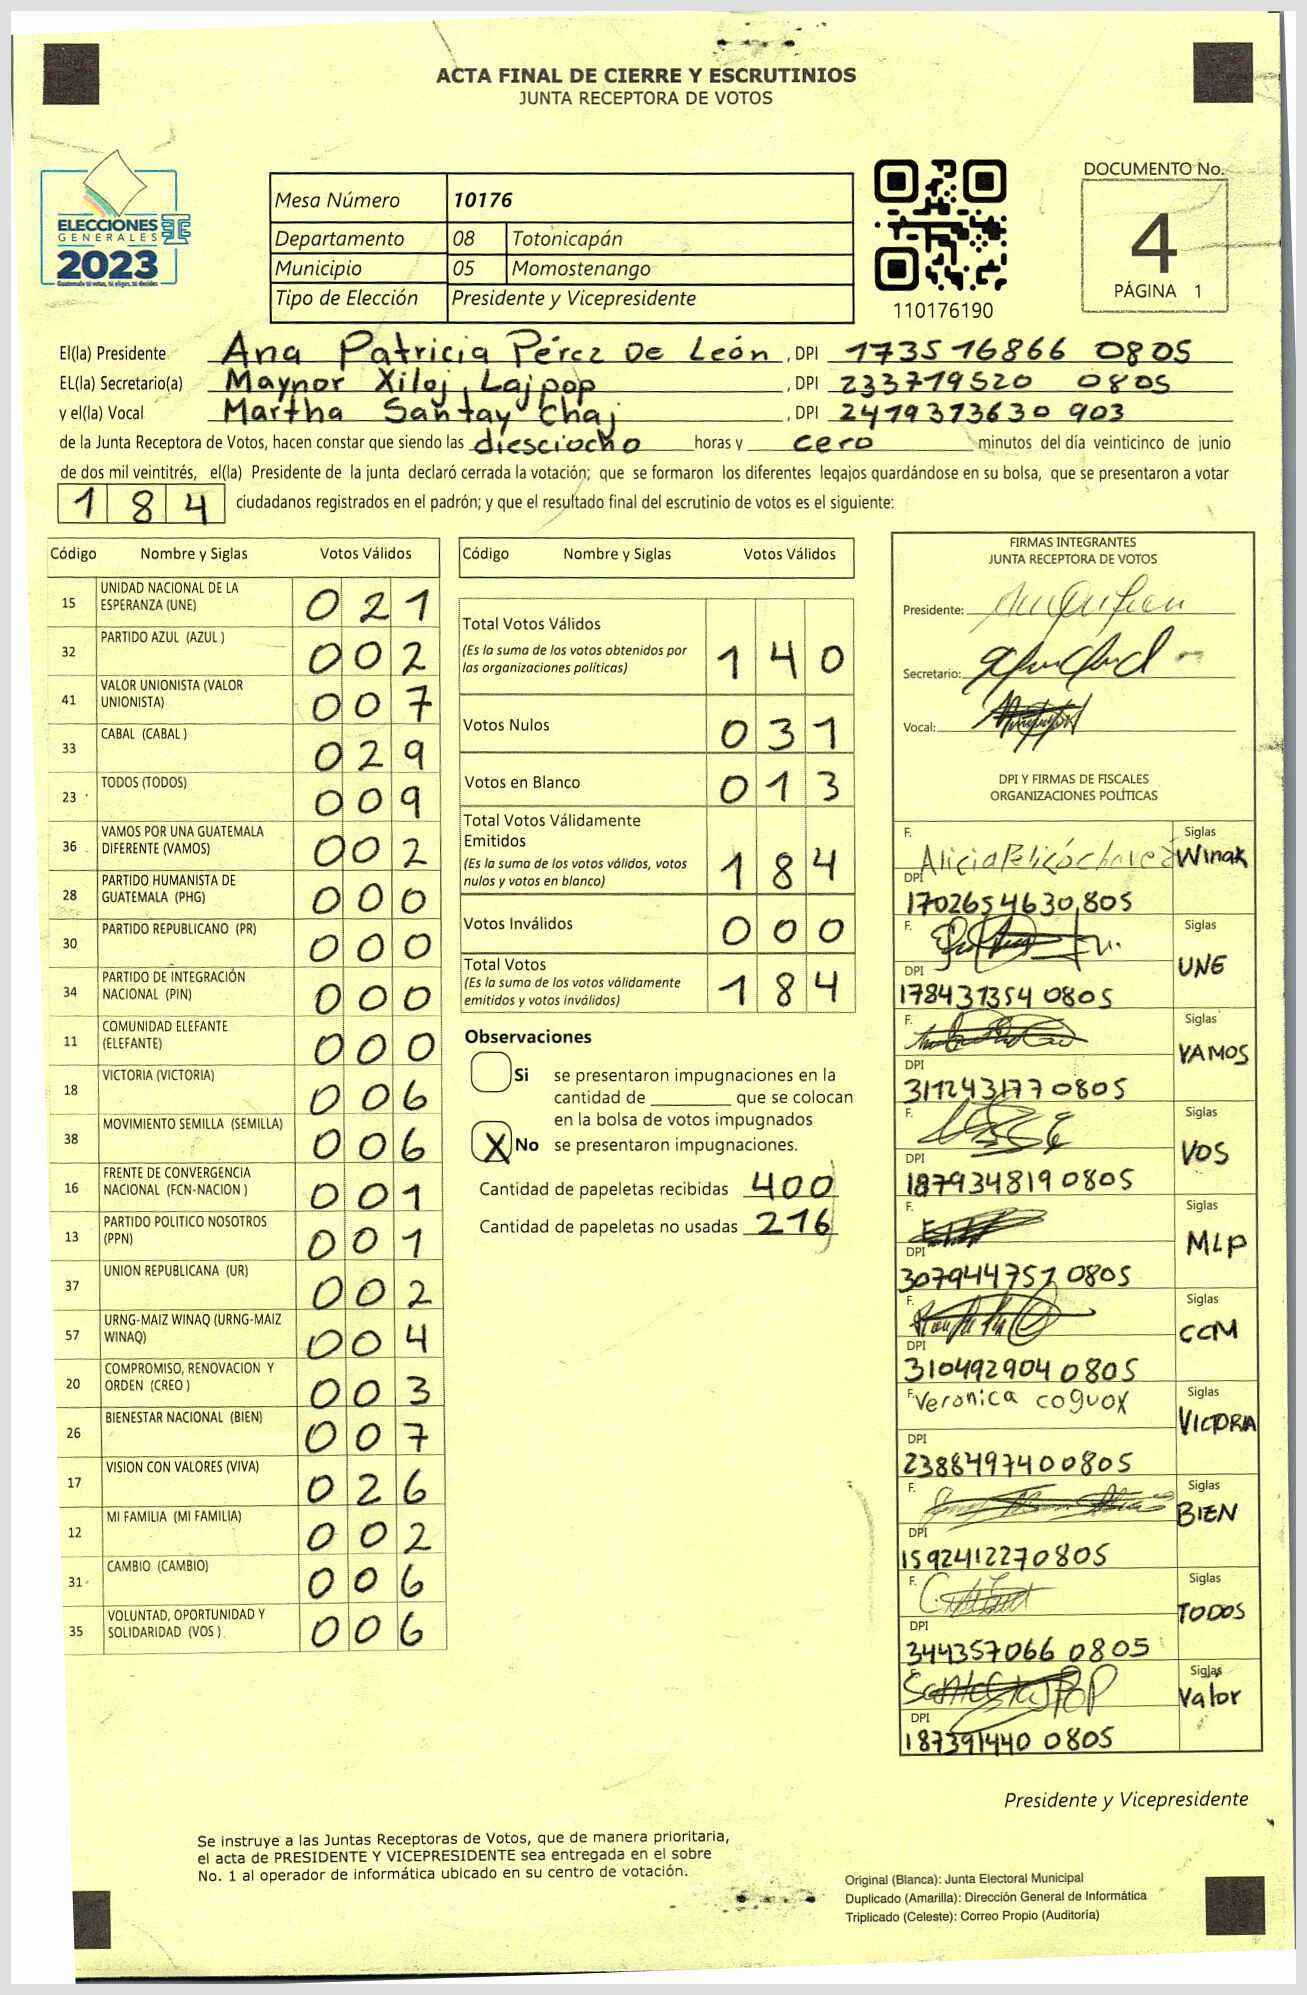 ACTA FINAL DE CIERRE Y ESCRUTINIOS
JUNTA RECEPTORA DE VOTOS
ELECCIONES
GENERALES
2023
Guatemala tú votas, tú eliges, tú decides
Mesa Número 10176
Departamento 08 Totonicapán
Municipio 05 Momostenango
Tipo de Elección Presidente y Vicepresidente
110176190
DOCUMENTO No.
4
PÁGINA 1
El(la) Presidente Ana Patricia Pérez De León, DPI 173516866 0805
EL(la) Secretario(a) Maynor Xiloj Lajpop, DPI 233719520 0805
y el(la) Vocal Martha Santay Chaj, DPI 2479373630 903
de la Junta Receptora de Votos, hacen constar que siendo las diesciocho horas y cero minutos del día veinticinco de junio
de dos mil veintitrés, el(la) Presidente de la junta declaró cerrada la votación; que se formaron los diferentes legajos quardándose en su bolsa, que se presentaron a votar
184 ciudadanos registrados en el padrón; y que el resultado final del escrutinio de votos es el siguiente:
Código Nombre y Siglas Votos Válidos
15 UNIDAD NACIONAL DE LA
ESPERANZA (UNE) 021
32 PARTIDO AZUL (AZUL ) 002
41 VALOR UNIONISTA (VALOR
UNIONISTA) 007
33 CABAL (CABAL ) 029
23 TODOS (TODOS) 009
36 VAMOS POR UNA GUATEMALA
DIFERENTE (VAMOS) 002
28 PARTIDO HUMANISTA DE
GUATEMALA (PHG) 000
30 PARTIDO REPUBLICANO (PR) 000
34 PARTIDO DE INTEGRACIÓN
NACIONAL (PIN) 000
11 COMUNIDAD ELEFANTE
(ELEFANTE) 000
18 VICTORIA (VICTORIA) 006
38 MOVIMIENTO SEMILLA (SEMILLA) 006
16 FRENTE DE CONVERGENCIA
NACIONAL (FCN-NACION ) 001
13 PARTIDO POLITICO NOSOTROS
(PPN) 001
37 UNION REPUBLICANA (UR) 002
57 URNG-MAIZ WINAQ (URNG-MAIZ
WINAQ) 004
20 COMPROMISO, RENOVACION Y
ORDEN (CREO ) 003
26 BIENESTAR NACIONAL (BIEN) 007
17 VISION CON VALORES (VIVA) 026
12 MI FAMILIA (MI FAMILIA) 002
31 CAMBIO (CAMBIO) 006
35 VOLUNTAD, OPORTUNIDAD Y
SOLIDARIDAD (VOS ) 006
Código Nombre y Siglas Votos Válidos
Total Votos Válidos
(Es la suma de los votos obtenidos por
las organizaciones políticas) 140
Votos Nulos 031
Votos en Blanco 013
Total Votos Válidamente
Emitidos
(Es la suma de los votos válidos, votos
nulos y votos en blanco) 184
Votos Inválidos 000
Total Votos
(Es la suma de los votos válidamente
emitidos y votos inválidos) 184
Observaciones
Si se presentaron impugnaciones en la
cantidad de ________ que se colocan
en la bolsa de votos impugnados
X No se presentaron impugnaciones.
Cantidad de papeletas recibidas 400
Cantidad de papeletas no usadas 216
FIRMAS INTEGRANTES
JUNTA RECEPTORA DE VOTOS
Presidente:
Secretario:
Vocal:
DPI Y FIRMAS DE FISCALES
ORGANIZACIONES POLÍTICAS
F. Alicia Pelicó chavez Siglas Winak
DPI
1702654630,805
F. Siglas UNE
DPI
178431354 0805
F. Siglas VAMOS
DPI
311243177 0805
F. Siglas VOS
DPI
187934819 0805
F. Siglas MLP
DPI
307944757 0805
F. Siglas CCM
DPI
310492904 0805
F. Veronica coguox Siglas VICTORIA
DPI
2388497400805
F. Siglas BIEN
DPI
1592412270805
F. Siglas TODOS
DPI
344357066 0805
F. Siglas Valor
DPI
187391440 0805
Presidente y Vicepresidente
Se instruye a las Juntas Receptoras de Votos, que de manera prioritaria,
el acta de PRESIDENTE Y VICEPRESIDENTE sea entregada en el sobre
No. 1 al operador de informática ubicado en su centro de votación.
Original (Blanca): Junta Electoral Municipal
Duplicado (Amarilla): Dirección General de Informática
Triplicado (Celeste): Correo Propio (Auditoría)